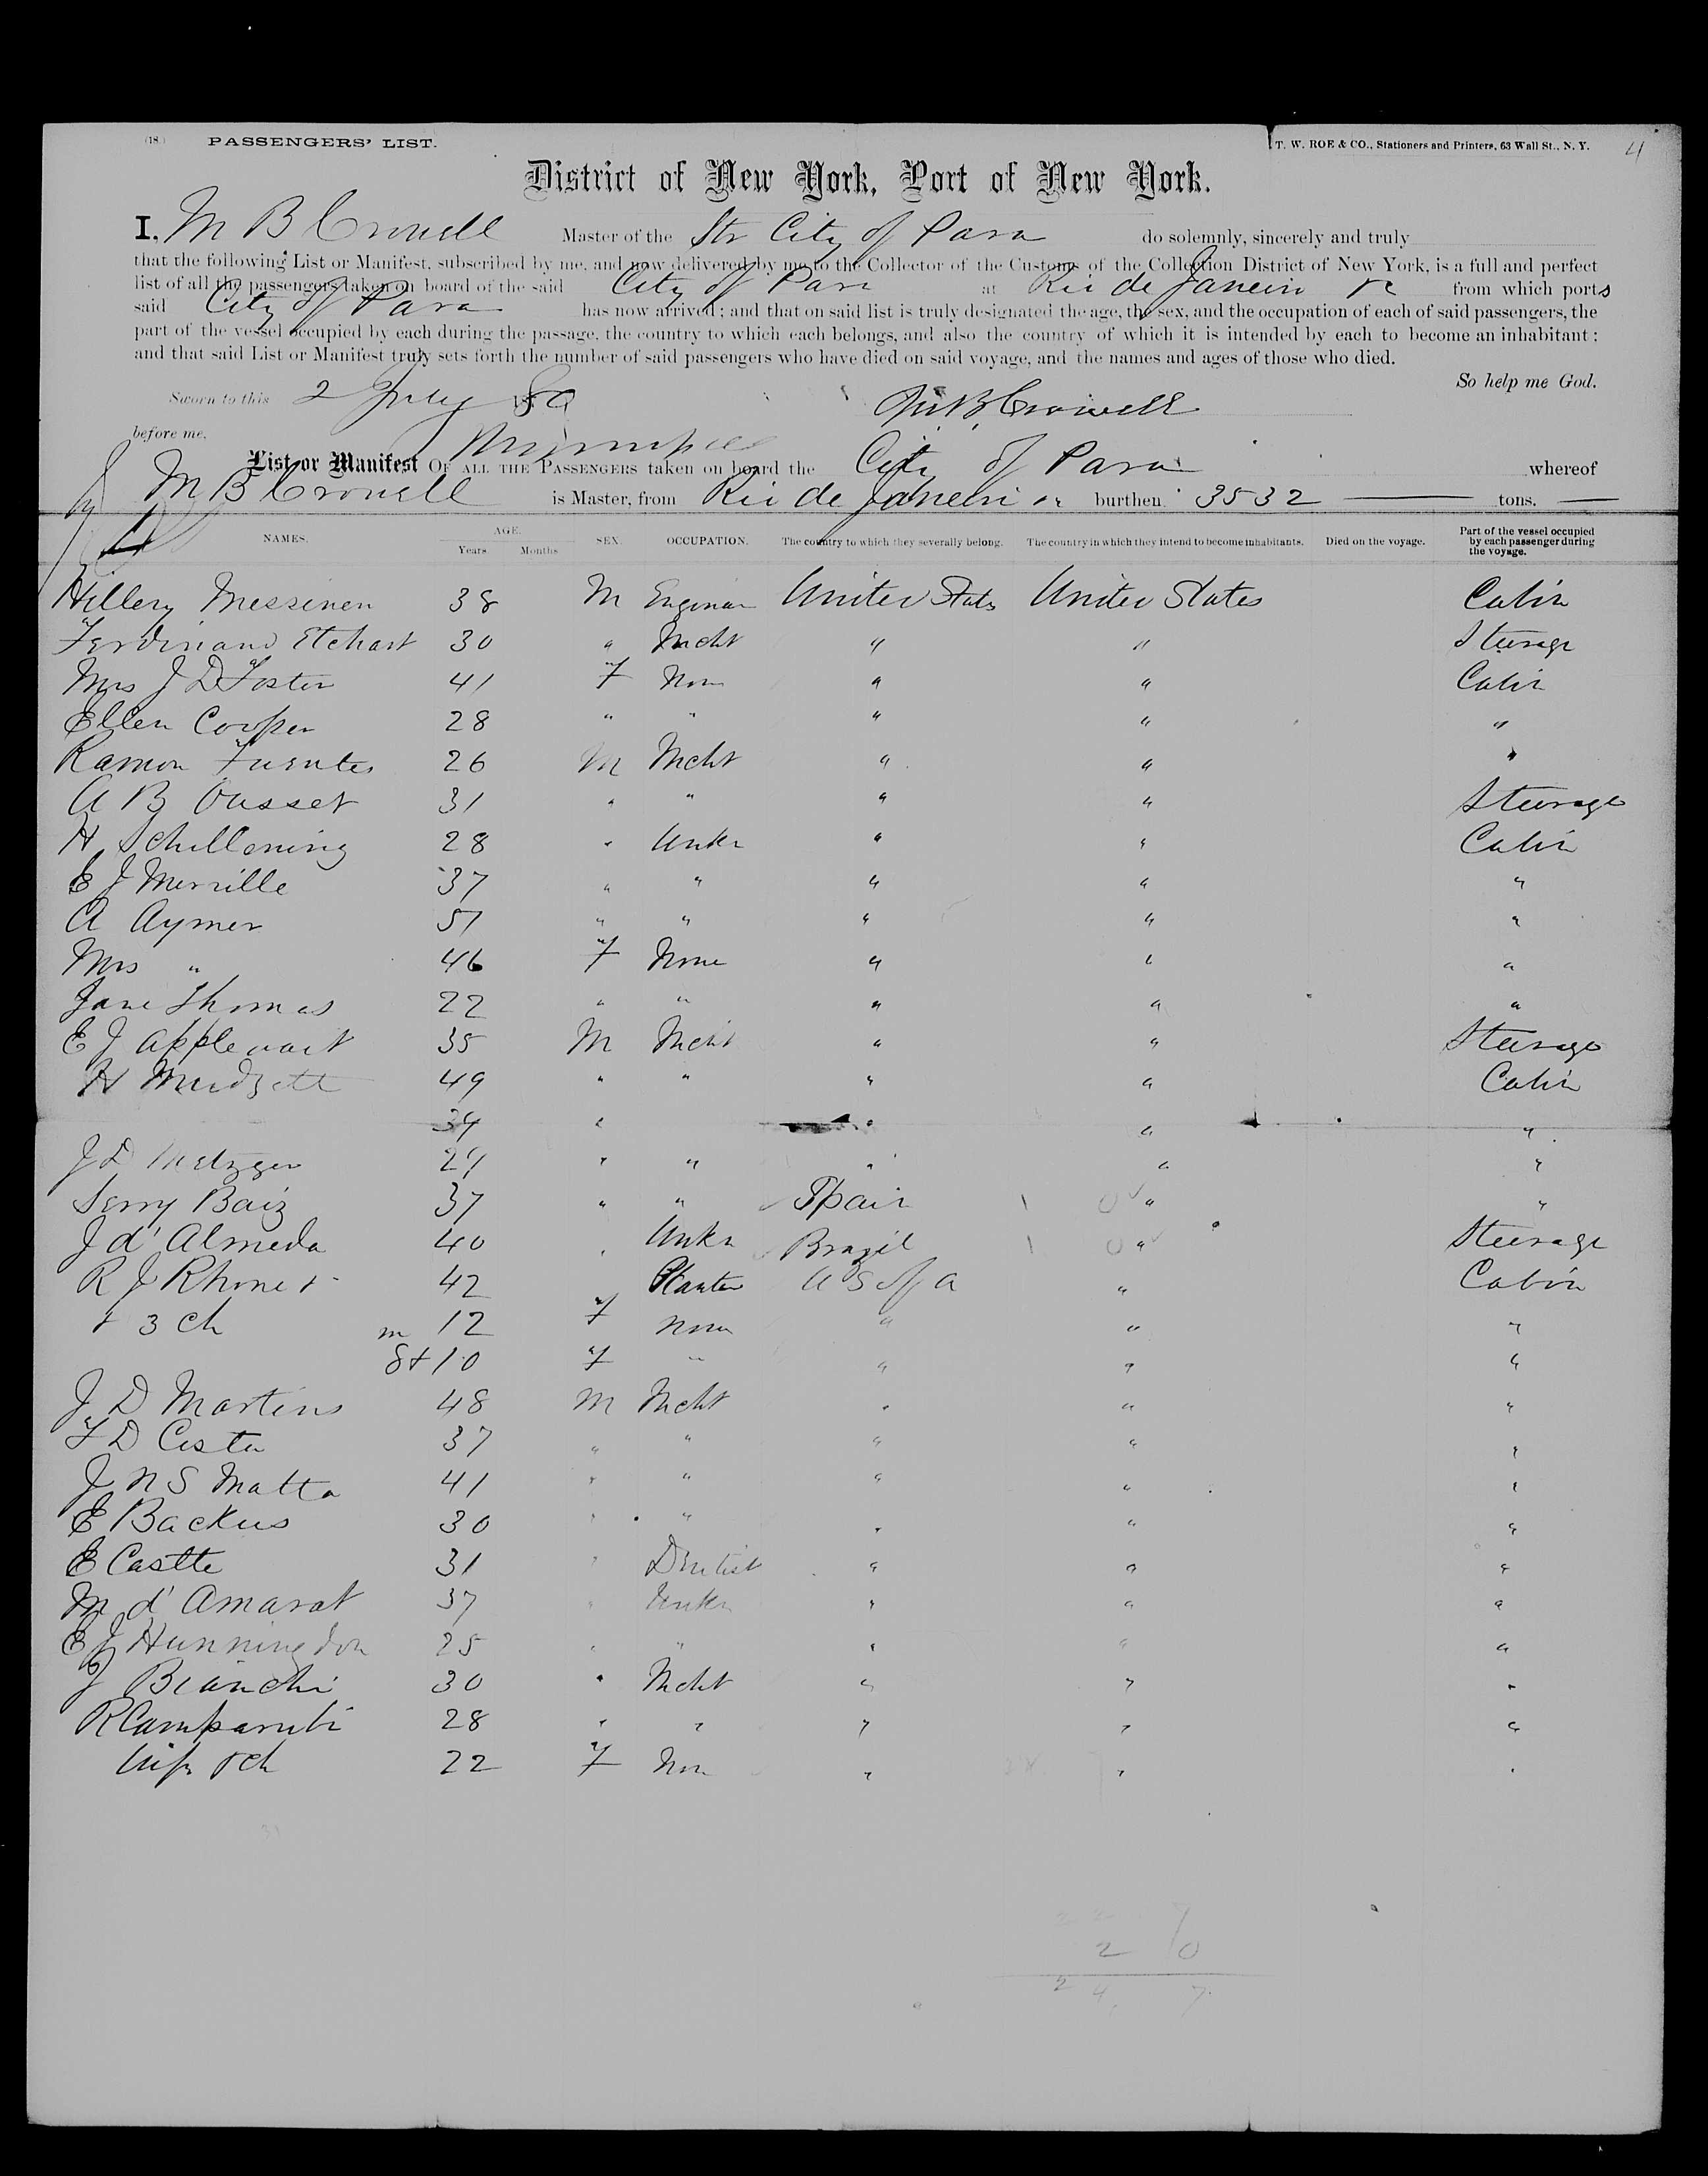 (18.) PASSENGERS' LIST. T. W. ROE & CO., Stationers and Printers, 63 Wall St., N. Y. 4
District of New York, Port of New York.
I, M B Crowell Master of the Str City of Para do solemnly, sincerely and truly
that the following List or Manifest, subscribed by me, and now delivered by me to the Collector of the Customs of the Collection District of New York, is a full and perfect
list of all the passengers taken on board of the said City of Para at Rio de Janeiro &c from which ports
said City of Para has now arrived; and that on said list is truly designated the age, the sex, and the occupation of each of said passengers, the
part of the vessel occupied by each during the passage, the country to which each belongs, and also the country of which it is intended by each to become an inhabitant;
and that said List or Manifest truly sets forth the number of said passengers who have died on said voyage, and the names and ages of those who died.
So help me God.
Sworn to this 2 July 80 M B Crowell
before me,
List or Manifest OF ALL THE PASSENGERS taken on board the City of Para whereof
M B Crowell is Master, from Rio de Janeiro &c burthen 3532 tons.
NAMES. AGE. Years. Months SEX. OCCUPATION. The country to which they severally belong. The country in which they intend to become inhabitants. Died on the voyage. Part of the vessel occupied by each passenger during the voyage.
Hillery Messinen 38 M Enginar United States United States Cabin
Ferdinand Etchart 30 " Mcht " " Steerage
Mrs J D Foster 41 F Non " " Cabin
Ellen Cooper 28 " " " " "
Ramon Fuentes 26 M Mcht " " "
A B Ousset 31 " " " " Steerage
H Schillening 28 " Unkn " " Cabin
E J Merrille 37 " " " " "
A Aymer 51 " " " " "
Mrs " 46 F None " " "
Jane Thomas 22 " " " " "
E J Applewait 35 M Mcht " " Steerage
H Mudgett 49 " " " " Cabin
34 " " " "
J D Metzger 29 " " " " "
Serry Baiz 37 " " Spain " "
J d' Almeda 40 " Unkn Brazil " Steerage
R J Rhome + 42 Planter U S of A " Cabin
+ 3 ch m 12 F None " " "
8 + 10 F " " " "
J D Martins 48 M Mcht " " "
F D Costa 37 " " " " "
J N S Matta 41 " " " " "
E Backus 30 " " " " "
E Castte 31 " Dentist " " "
M d' Amarat 37 " Unkn " " "
E J Hunningdon 25 " " " " "
J Bianchi 30 " Mcht " " "
R Camparubi 28 " " " " "
Wife & ch 22 F Non " " "
31
22 7
2 0
24 7